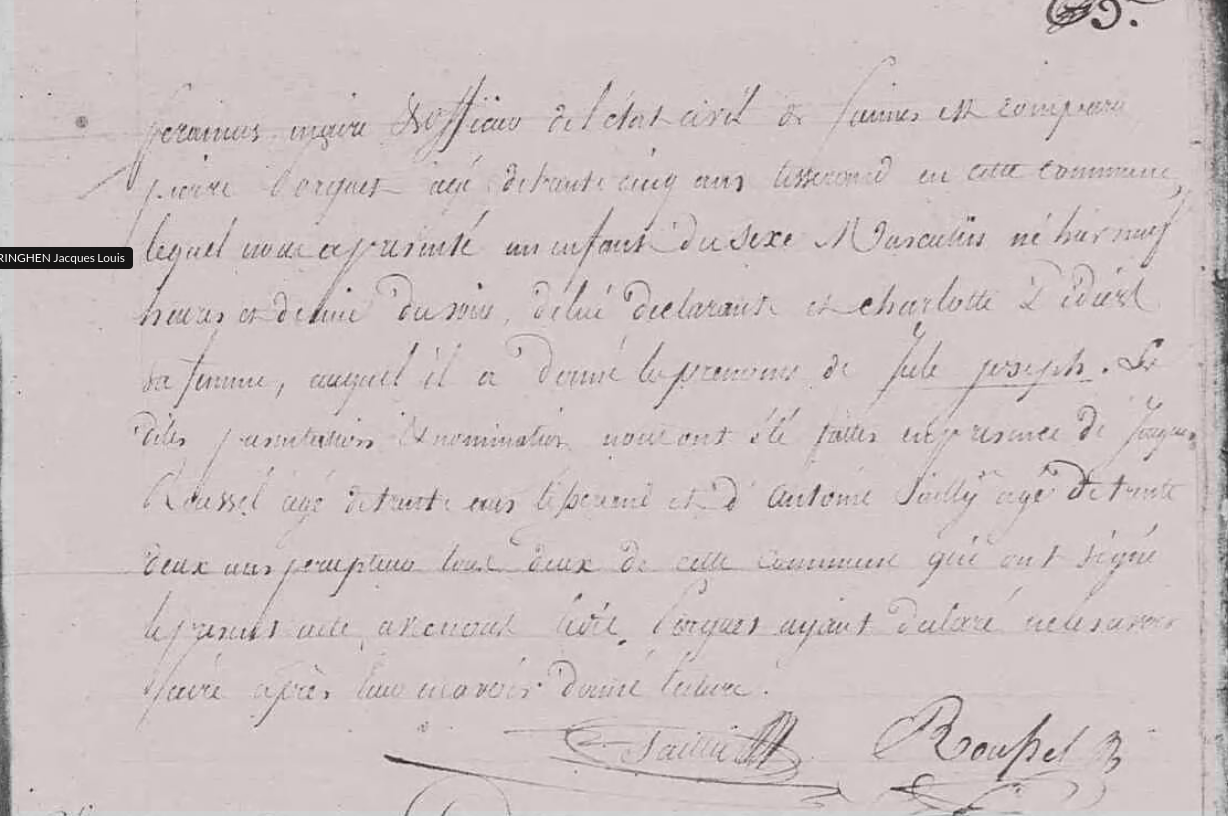 maire & officier de l'état civil de est comparu
pierre agé de trante cinq ans tisserand en cette commune,
lequel nous a présenté un enfant du sexe Masculin né hier neuf
RINGHEN Jacques Louis
heures et demie du soir, de lui déclarant et charlotte
sa femme, auquel il a donné les prenoms de Jule joseph. Les
dites presentation & nomination nous ont été faites en présence de
Roussel agé de trante ans tisserand et d'antoine Sailly agé de trente
deux ans percepteur tous deux de cette commune qui ont signé
le présent acte avec nous ledit ayant declaré ne le savoir
faire après leur en avoir donné lecture.
Roussel